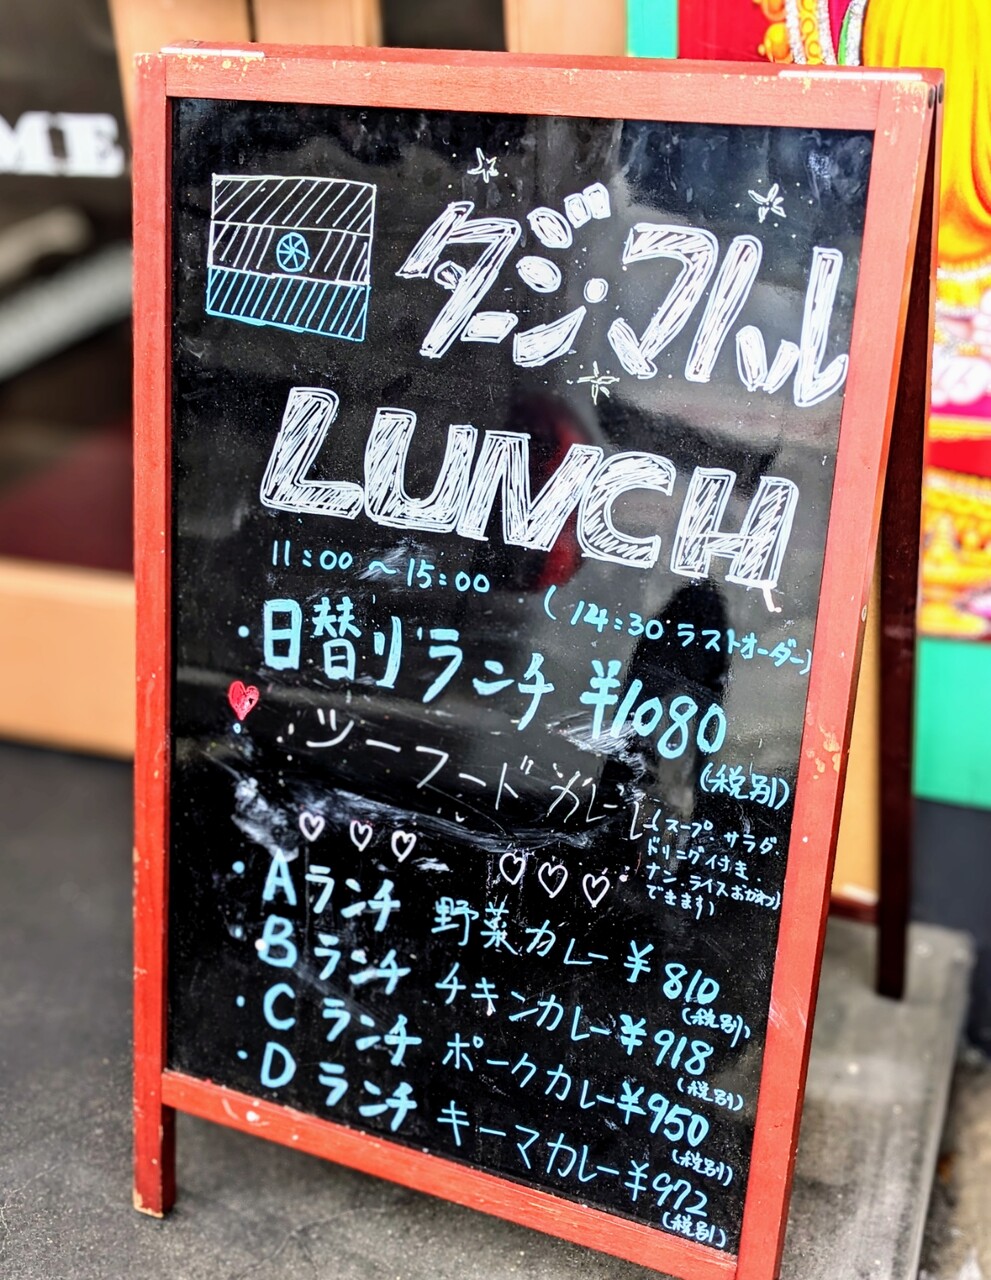 ME
タージ・マハル
LUNCH
11:00 ～15:00
(14:30 ラストオーダー)
・日替りランチ ¥1080
(税別)
シーフードカレー
(スープ サラダ
ドリンク付き
ナン、ライスおかわり
できます)
・Aランチ 野菜カレー ¥810
(税別)
・Bランチ チキンカレー ¥918
(税別)
・Cランチ ポークカレー ¥950
(税別)
・Dランチ キーマカレー ¥972
(税別)